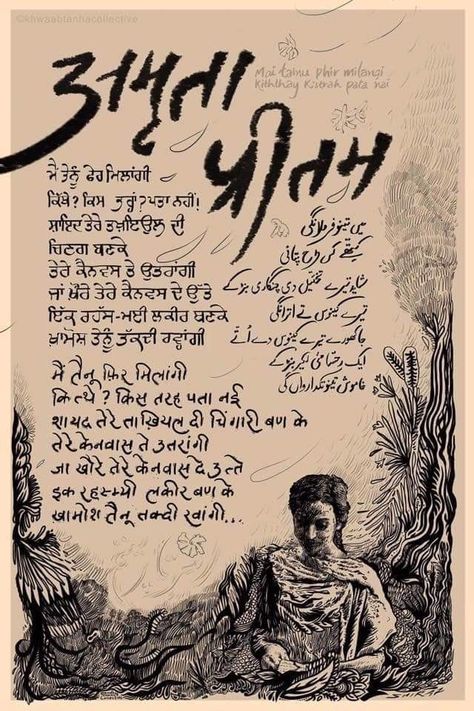 ©khwaabtanhacollective
अमृता
प्रीतम
Mai tainu phir milangi
Kiththay Kistrah pata nai
ਮੈਂ ਤੈਨੂੰ ਫੇਰ ਮਿਲਾਂਗੀ
ਕਿੱਥੇ? ਕਿਸ ਤਰ੍ਹਾਂ? ਪਤਾ ਨਹੀਂ!
ਸ਼ਾਇਦ ਤੇਰੇ ਤਖ਼ਇਉਲ ਦੀ
ਚਿਣਗ ਬਣਕੇ
ਤੇਰੇ ਕੈਨਵਸ ਤੇ ਉਤਰਾਂਗੀ
ਜਾਂ ਖ਼ੌਰੇ ਤੇਰੇ ਕੈਨਵਸ ਦੇ ਉੱਤੇ
ਇੱਕ ਰਹੱਸ-ਮਈ ਲਕੀਰ ਬਣਕੇ
ਖ਼ਾਮੋਸ਼ ਤੈਨੂੰ ਤੱਕਦੀ ਰਵ੍ਹਾਂਗੀ
میں تینو فر ملانگی
کتھے کس طرح پتا نئی
شاید تیرے تخیل دی چنگاری بنڑ کے
تیرے کینوس تے اترانگی
جا کھورے تیرے کینوس دے اُتے
ایک لکیر بنڑ کے
خاموش تینو تکدی رواں گی
मैं तैनू फ़िर मिलांगी
कित्थे ? किस तरह पता नई
शायद तेरे ताखियल दी चिंगारी बण के
तेरे केनवास ते उतरांगी
जा खौरे तेरे केनवास दे उत्ते
इक रहस्म्यी लकीर बण के
खामोश तैनू तक्दी रवांगी...